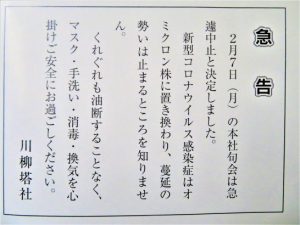 急告
２月７日（月）の本社句会は急
遽中止と決定しました。
新型コロナウイルス感染症はオ
ミクロン株に置き換わり、蔓延の
勢いは止まるところを知りませ
ん。
くれぐれも油断することなく、
マスク・手洗い・消毒・換気を心
掛けご安全にお過ごしください。
川柳塔社